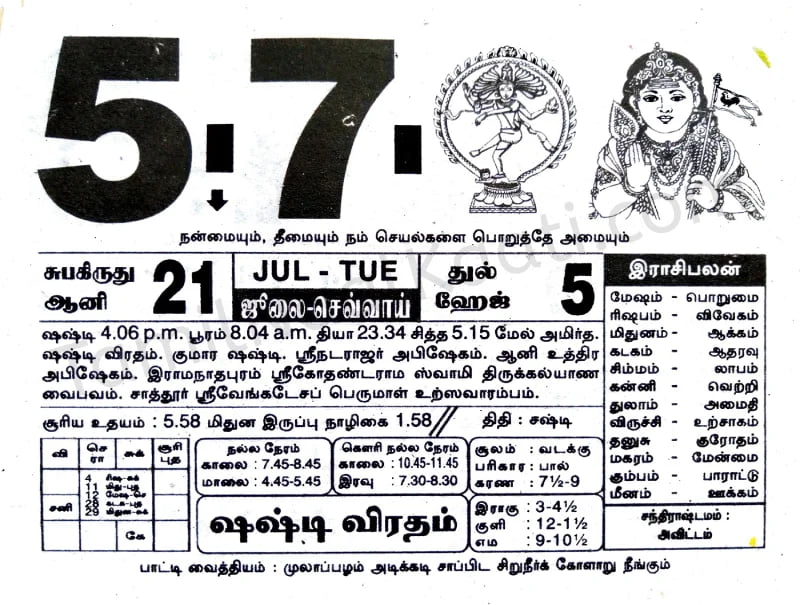 5.7.
நன்மையும், தீமையும் நம் செயல்களை பொறுத்தே அமையும்
சுபகிருது ஆனி 21
JUL - TUE
ஜூலை-செவ்வாய்
துல் ஹேஜ் 5
ஷஷ்டி 4.06 p.m. பூரம் 8.04 a.m. தியா 23.34 சித்த 5.15 மேல் அமிர்த.
ஷஷ்டி விரதம். குமார ஷஷ்டி. ஸ்ரீநடராஜர் அபிஷேகம். ஆனி உத்திர
அபிஷேகம். இராமநாதபுரம் ஸ்ரீகோதண்டராம ஸ்வாமி திருக்கல்யாண
வைபவம். சாத்தூர் ஸ்ரீவேங்கடேசப் பெருமாள் உற்ஸவாரம்பம்.
சூரிய உதயம் : 5.58 மிதுன இருப்பு நாழிகை 1.58 // திதி : சஷ்டி
இராசிபலன்
மேஷம் - பொறுமை
ரிஷபம் - விவேகம்
மிதுனம் - ஆக்கம்
கடகம் - ஆதரவு
சிம்மம் - லாபம்
கன்னி - வெற்றி
துலாம் - அமைதி
விருச்சி - உற்சாகம்
தனுசு - குரோதம்
மகரம் - மேன்மை
கும்பம் - பாராட்டு
மீனம் - ஊக்கம்
சந்திராஷ்டமம் :
அவிட்டம்
வி செ ரா சுக் சூரி புத
சனி
4 ரிஷ-சுக்
11 மிது-புத
12 மேஷ-செ
28 கடக-புத
29 மிதுன-சுக்
கே
நல்ல நேரம்
காலை : 7.45-8.45
மாலை : 4.45-5.45
கௌரி நல்ல நேரம்
காலை : 10.45-11.45
இரவு : 7.30-8.30
சூலம் : வடக்கு
பரிகார : பால்
கரண : 7½-9
ஷஷ்டி விரதம்
இராகு : 3-4½
குளி : 12-1½
எம : 9-10½
பாட்டி வைத்தியம் : முலாப்பழம் அடிக்கடி சாப்பிட சிறுநீர்க் கோளாறு நீங்கும்